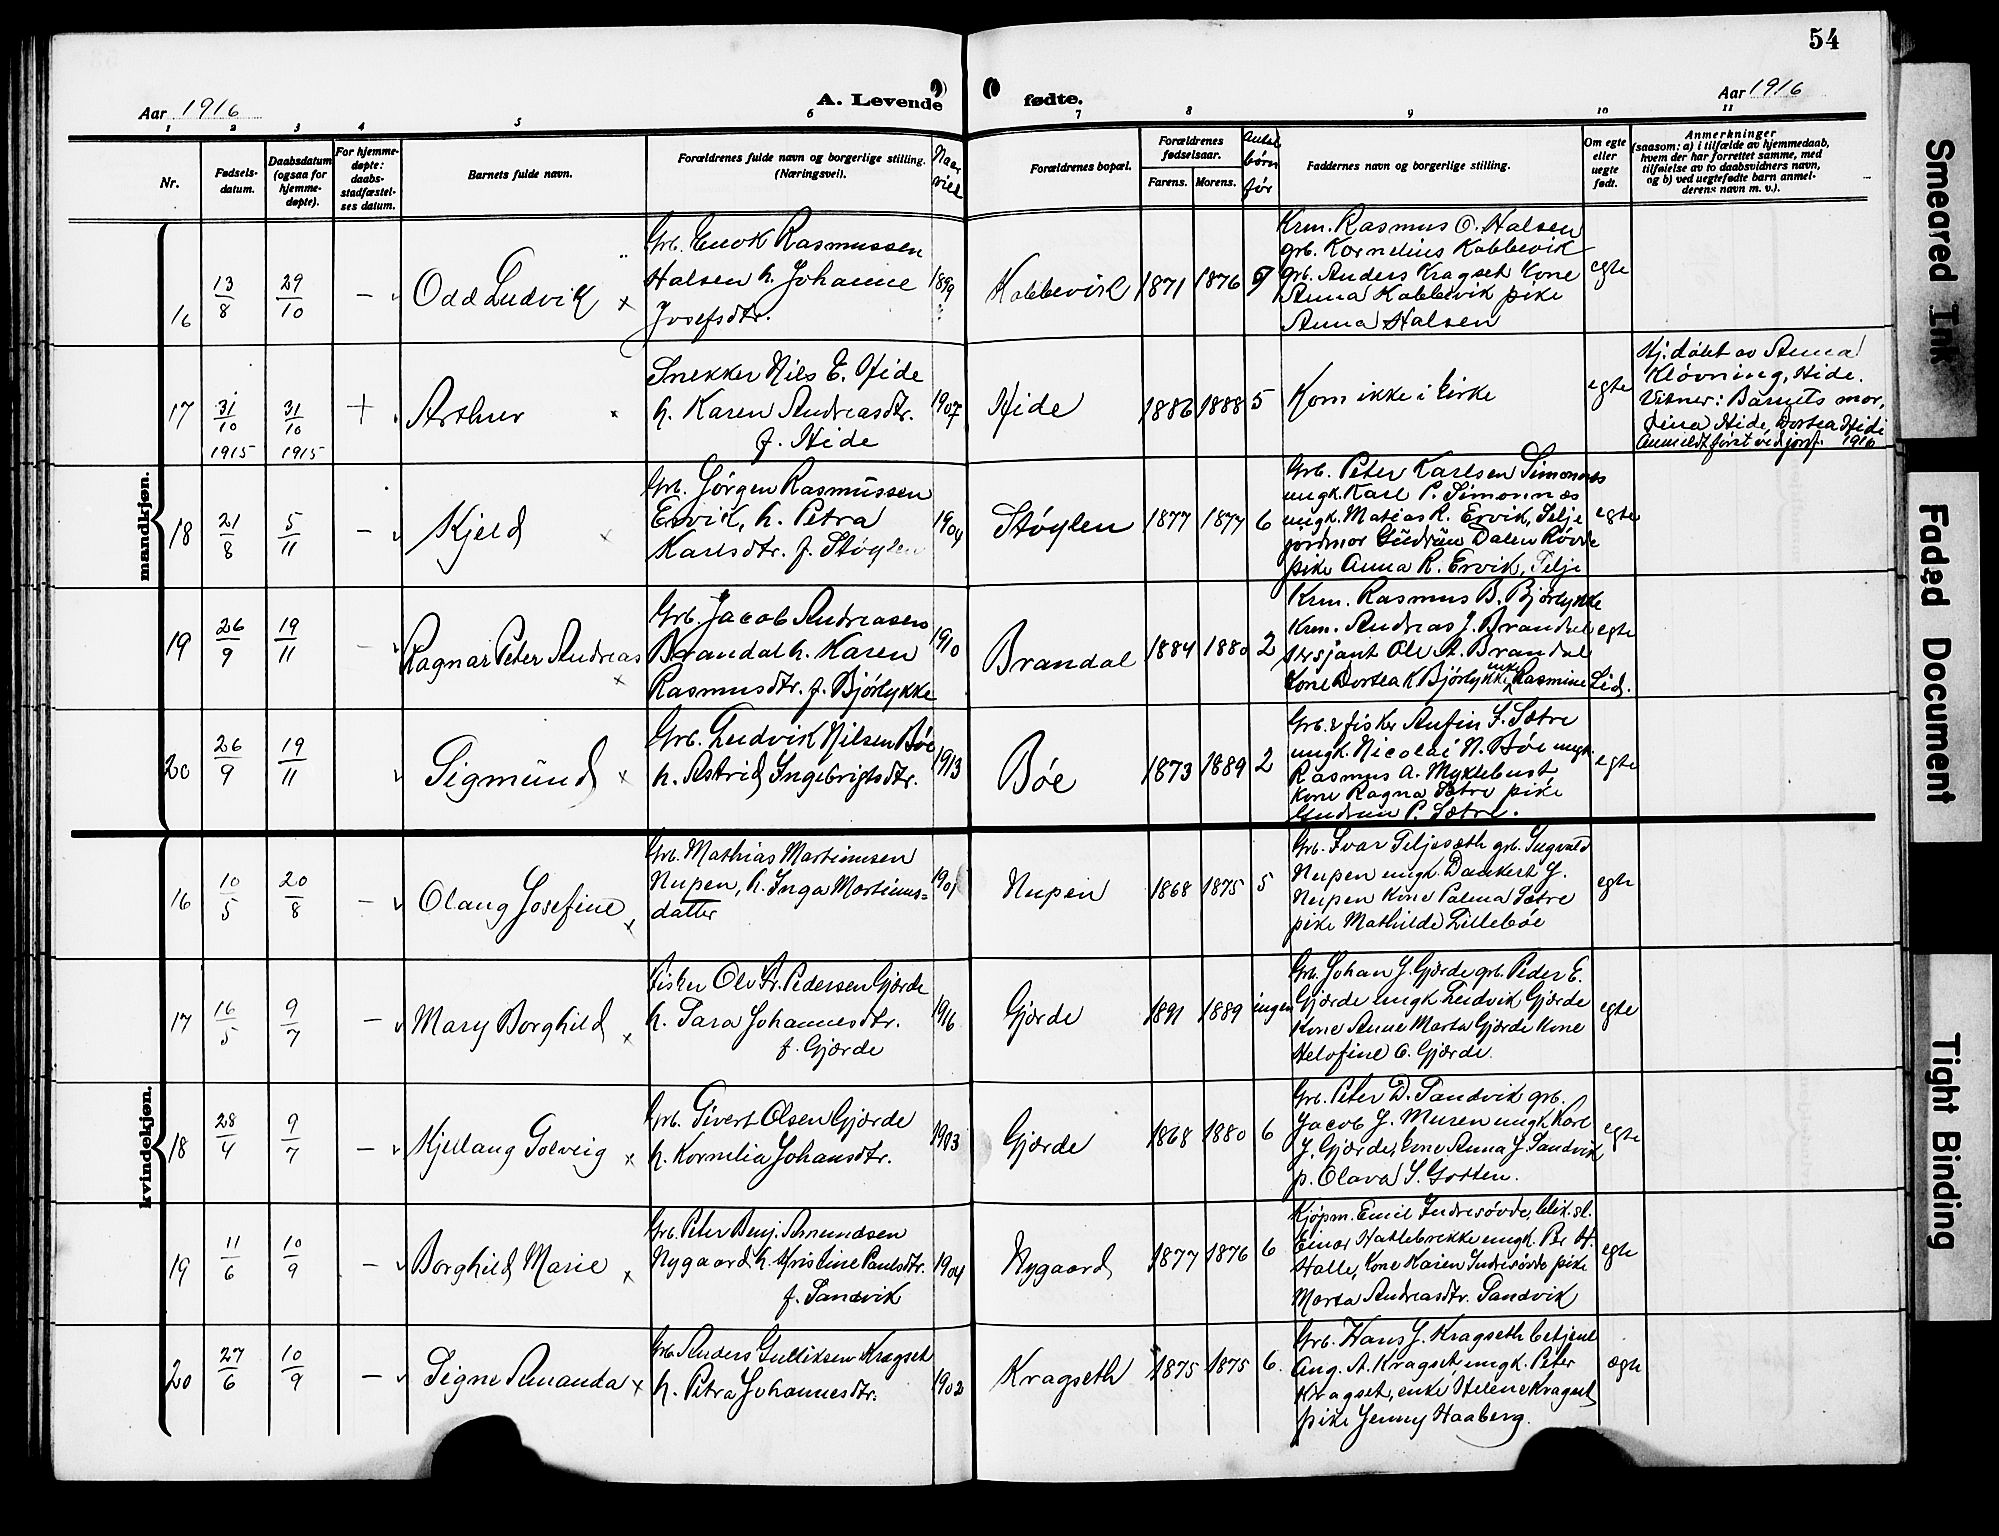 54
Aar 1916
A. Levende fødte.
Aar 1916
1 2 3 4 5 6 7 8 9 10 11
Nr.
Fødsels-
datum.
Daabsdatum
(ogsaa for
hjemme-
døpte).
For hjemme-
døpte:
daabs-
stadfæstel-
ses datum.
Barnets fulde navn.
Forældrenes fulde navn og borgerlige stilling.
(Næringsvei).
Naar
viet
Forældrenes bopæl.
Forældrenes
fødselsaar.
Farens. Morens.
Antal
børn
før
Faddernes navn og borgerlige stilling.
Om egte
eller
uegte
født.
Anmerkninger
(saasom: a) i tilfælde av hjemmedaab,
hvem der har forrettet samme, med
tilføielse av to daabsvidners navn,
og b) ved uegtefødte barn anmel-
derens navn m. v.).
mandkjøn.
16 13/8 29/10 — Odd Ludvik x
Grb. Enok Rasmussen
Halsen h. Johanne
Josefsdtr.
1899
Kobbevik 1871 1876 9
Krm. Rasmus O. Halsen
grb. Kornelius Kobbevik
grb. Anders Kragset kone
Anna Kobbevik pike
Anna Halsen
egte
17 31/10 1915 31/10 1915 + Arthur
Snekker Nils E. Hide
h. Karen Andreasdtr.
f. Hide
1907
Hide 1886 1888 5
Kom ikke i kirke
egte
Hj.døbt av Anna
Kløvning, Hide.
Vitner: Barnets mor,
Lina Hide, Dortea Hide
Anmeldt først ved jordm. 1916
18 21/8 5/11 — Kjeld x
Grb. Jørgen Rasmussen
Ervik, h. Petra
Karlsdtr. f. Støylen
1904
Støylen 1877 1877 6
Grb. Peter Karlsen Simonnes
ungk. Karl P. Simonnæs
ungk. Matias R. Ervik, Selje
jordmor Gudrun Dalen Røvde
pike Anna R. Ervik, Selje
egte
19 26/9 19/11 — Ragnar Peter Andreas x
Grb. Jacob Andreasen
Brandal h. Karen
Rasmusdtr. f. Bjørlykke
1910
Brandal 1884 1880 2
Krm. Rasmus B. Bjørlykke
Krm. Andreas J. Brandal
sersjant Ole A. Brandal
kone Dortea K Bjørlykke enke Rasmine Lid.
egte
20 26/9 19/11 Sigmund x
Grb. Ludvik Nilsen Bøe
h. Astrid Ingebrigtsdtr.
1913
Bøe 1873 1889 2
Grb. & fisker Anfin S. Sætre
ungk. Nicolai N. Bøe ungk.
Rasmus A. Myklebust,
kone Ragna Sætre pike
Gudrun P. Sætre.
egte
kvindekjøn.
16 10/5 20/8 — Olaug Josefine x
Grb. Mathias Martinusen
Nupen, h. Inga Martinus-
datter
1901
Nupen 1868 1875 5
Grb. Ivar Seljesæth grb. Ingvald
Nupen ungk. Dankert J.
Nupen kone Palma Sætre
pike Mathilde Lillebøe
egte
17 16/5 9/7 — Mary Borghild x
Fisker Ole Fr. Pedersen Gjærde
h. Sara Johannesdtr.
f. Gjærde
1916
Gjærde 1891 1889 ingen
Grb. Johan J. Gjærde grb. Peder E.
Gjærde ungk Ludvik Gjærde
kone Anne Marta Gjærde kone
Helofine O. Gjærde.
egte
18 28/4 9/7 — Kjellaug Solveig x
Grb. Sivert Olsen Gjærde
h. Kornelia Johansdtr.
1903
Gjærde 1868 1880 6
Grb. Peter D. Sandvik grb.
Jacob J. Muren ungk Karl
J. Gjærde, kone Anna J. Sandvik
p. Olava S. Gotten.
egte
19 11/6 10/9 — Borghild Marie x
Grb. Peter Benj. Amundsen
Nygaard h. Kristine Paulsdtr.
f. Sandvik
1904
Nygaard 1877 1876 6
Kjøpm. Emil Indresøvde, blik.sl.
Einar Hatlebrekke ungk. Per H.
Halle, kone Karen Indresøvde pike
Marta Andreasdtr. Sandvik
egte
20 27/6 10/9 — Signe Amanda x
Grb. Anders Gulliksen Kragset
h. Petra Johannesdtr.
1902
Kragseth 1875 1875 6
Grb. Hans J. Kragseth betjent
Aug. A. Kragset, ungk. Peter
Kragset, enke Helene Kragset
pike Jenny Haaberg.
egte
Smeared Ink
Faded Document
Tight Binding